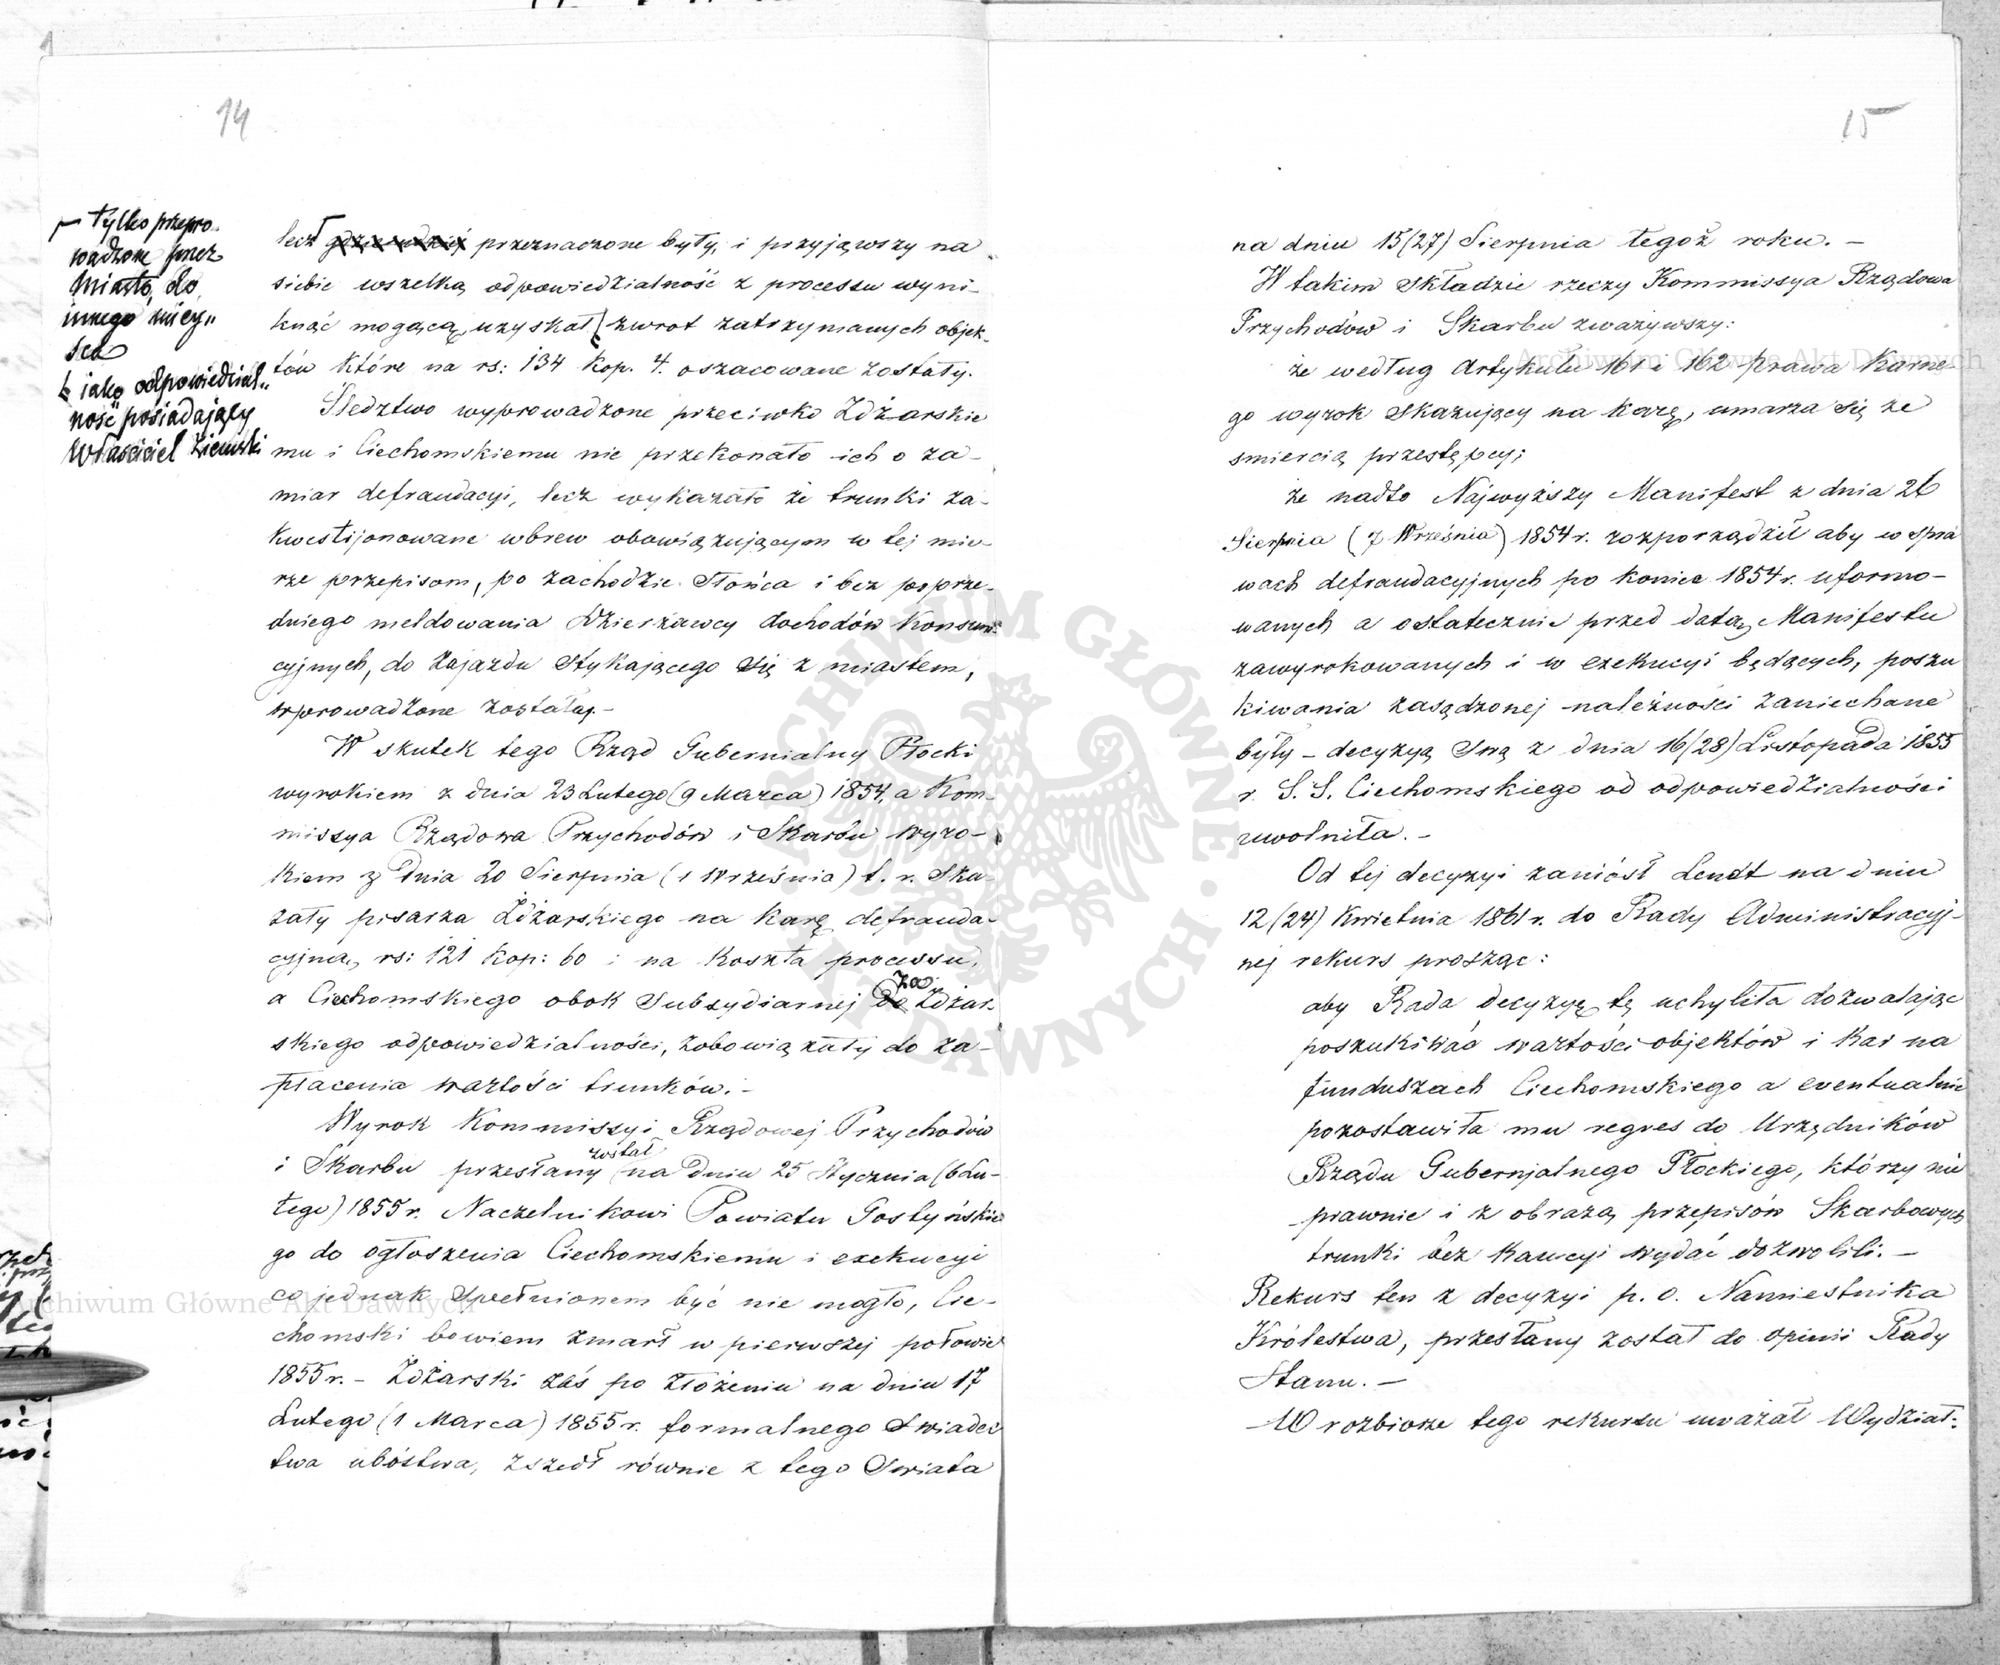 14
⌐ tylko przepro-
wadzone przez
Miasto, do
innego miey„
sca
jako odpowiedzial„
ność posiadający
Właściciel Ziemski
lecz przeznaczone były, i przyjąwszy na
siebie wszelką odpowiedzialność z processu wyni-
knąć mogącą, uzyskał zwrot zatrzymanych objek-
tów które na rs: 134 kop. 4. oszacowane zostały.
Śledztwo wyprowadzone przeciwko Zdżarskie
mu i Ciechomskiemu nie przekonało ich o za-
miar defraudacyi, lecz wykazało że trunki za-
kwestijonowane wbrew obowiązującym w tej mie-
rze przepisom, po zachodzie Słońca i bez poprze-
dniego meldowania Dzierżawcy dochodów Konsum-
cyjnych, do zajazdu stykającego się z miastem,
wprowadzone zostały.-
W skutek tego Rząd Gubernialny Płocki
wyrokiem z dnia 23 Lutego (9 Marca) 1854, a Kom-
missya Rządowa Przychodów i Skarbu wyro-
kiem z Dnia 20 Sierpnia (1 Września) t. r. Ska-
zały pisarza Zdżarskiego na karę defrauda-
cyjną, rs: 121 kop: 60 i na koszta processu,
a Ciechomskiego obok Subsydiarnej za Zdżar-
skiego odpowiedzialności, zobowiązały do za-
płacenia wartości trunków.-
Wyrok Kommissyi Rządowej Przychodów
i Skarbu przesłany został na Dniu 25 Stycznia (6 Lu-
tego) 1855 r. Naczelnikowi Powiatu Gostyńskie
go do ogłoszenia Ciechomskiemu i exekucyi
co jednak spełnionem być nie mogło, Cie-
chomski bowiem zmarł w pierwszej połowie
1855 r. - Zdżarski zaś po złożeniu na dniu 17
Lutego (1 Marca) 1855 r. formalnego Świadec
twa ubóstwa, zszedł równie z tego Świata
15
na dniu 15 (27) Sierpnia tegoż roku. -
W takim składzie rzeczy Kommissya Rządowa
Przychodów i Skarbu zważywszy:
że według Artykułu 161 i 162 prawa Karne-
go wyrok skazujący na karę, umarza się ze
smiercią przestępcy;
że nadto Najwyższy Manifest z dnia 26
Sierpnia (7 Września) 1854 r. rozporządził aby w spra
wach defraudacyjnych po koniec 1854 r. uformo-
wanych a ostatecznie przed datą Manifestu
zawyrokowanych i w exekucyi będących, poszu
kiwania zasądzonej należności zaniechane
były - decyzyą swą z dnia 16 (28) Listopada 1855
r. S. S. Ciechomskiego od odpowiedzialności
uwolniła. -
Od tej decyzyi zaniósł Lendt na dniu
12 (24) Kwietnia 1861 r. do Rady Administracyj-
nej rekurs prosząc:
aby Rada decyzyę tę uchyliła dozwalając
poszukiwać wartości objektów i kar na
funduszach Ciechomskiego a eventualnie
pozostawiła mu regres do Urzędników
Rządu Gubernjalnego Płockiego, którzy nie
prawnie i z obrazą przepisów Skarbowych
trunki bez kaucyi wydać dozwolili. -
Rekurs ten z decyzyi p. o. Namiestnika
Królestwa, przesłany został do opinii Rady
Stanu. -
W rozbiorze tego rekursu uważał Wydział:
Archiwum Główne Akt Dawnych
Archiwum Główne Akt Dawnych
ARCHIWUM GŁÓWNE AKT DAWNYCH